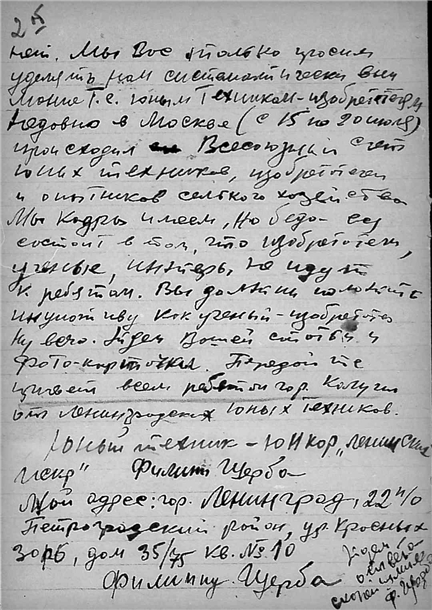 2й
нет. Мы Вас только просим
уделять нам систематически вни
мание т.е. юным техникам-изобретателям
Недавно в Москве (с 15 по 20 июля)
происходил Всесоюзный слет
юных техников, изобретател
и опытников сельского хозяйства
Мы кадры имеем, но беда-
состоит в том, что изобретатели,
ученые, не идут
к ребятам. Вы должны положить
как ученый-изобрета
Ждем Вашей статьи и
фото-карточки. Передайте
привет всем ребятам гор. Калуги
от Ленинградских юных техников.
Юный техник - юнкор „Ленински
искр" Филипп Щерба
Мой адрес: гор. Ленинград, 22 п/о
Петроградский район, ул Красных
зорь, дом 35/75 кв. № 10
Филиппу Щерба
Ждем
ответа